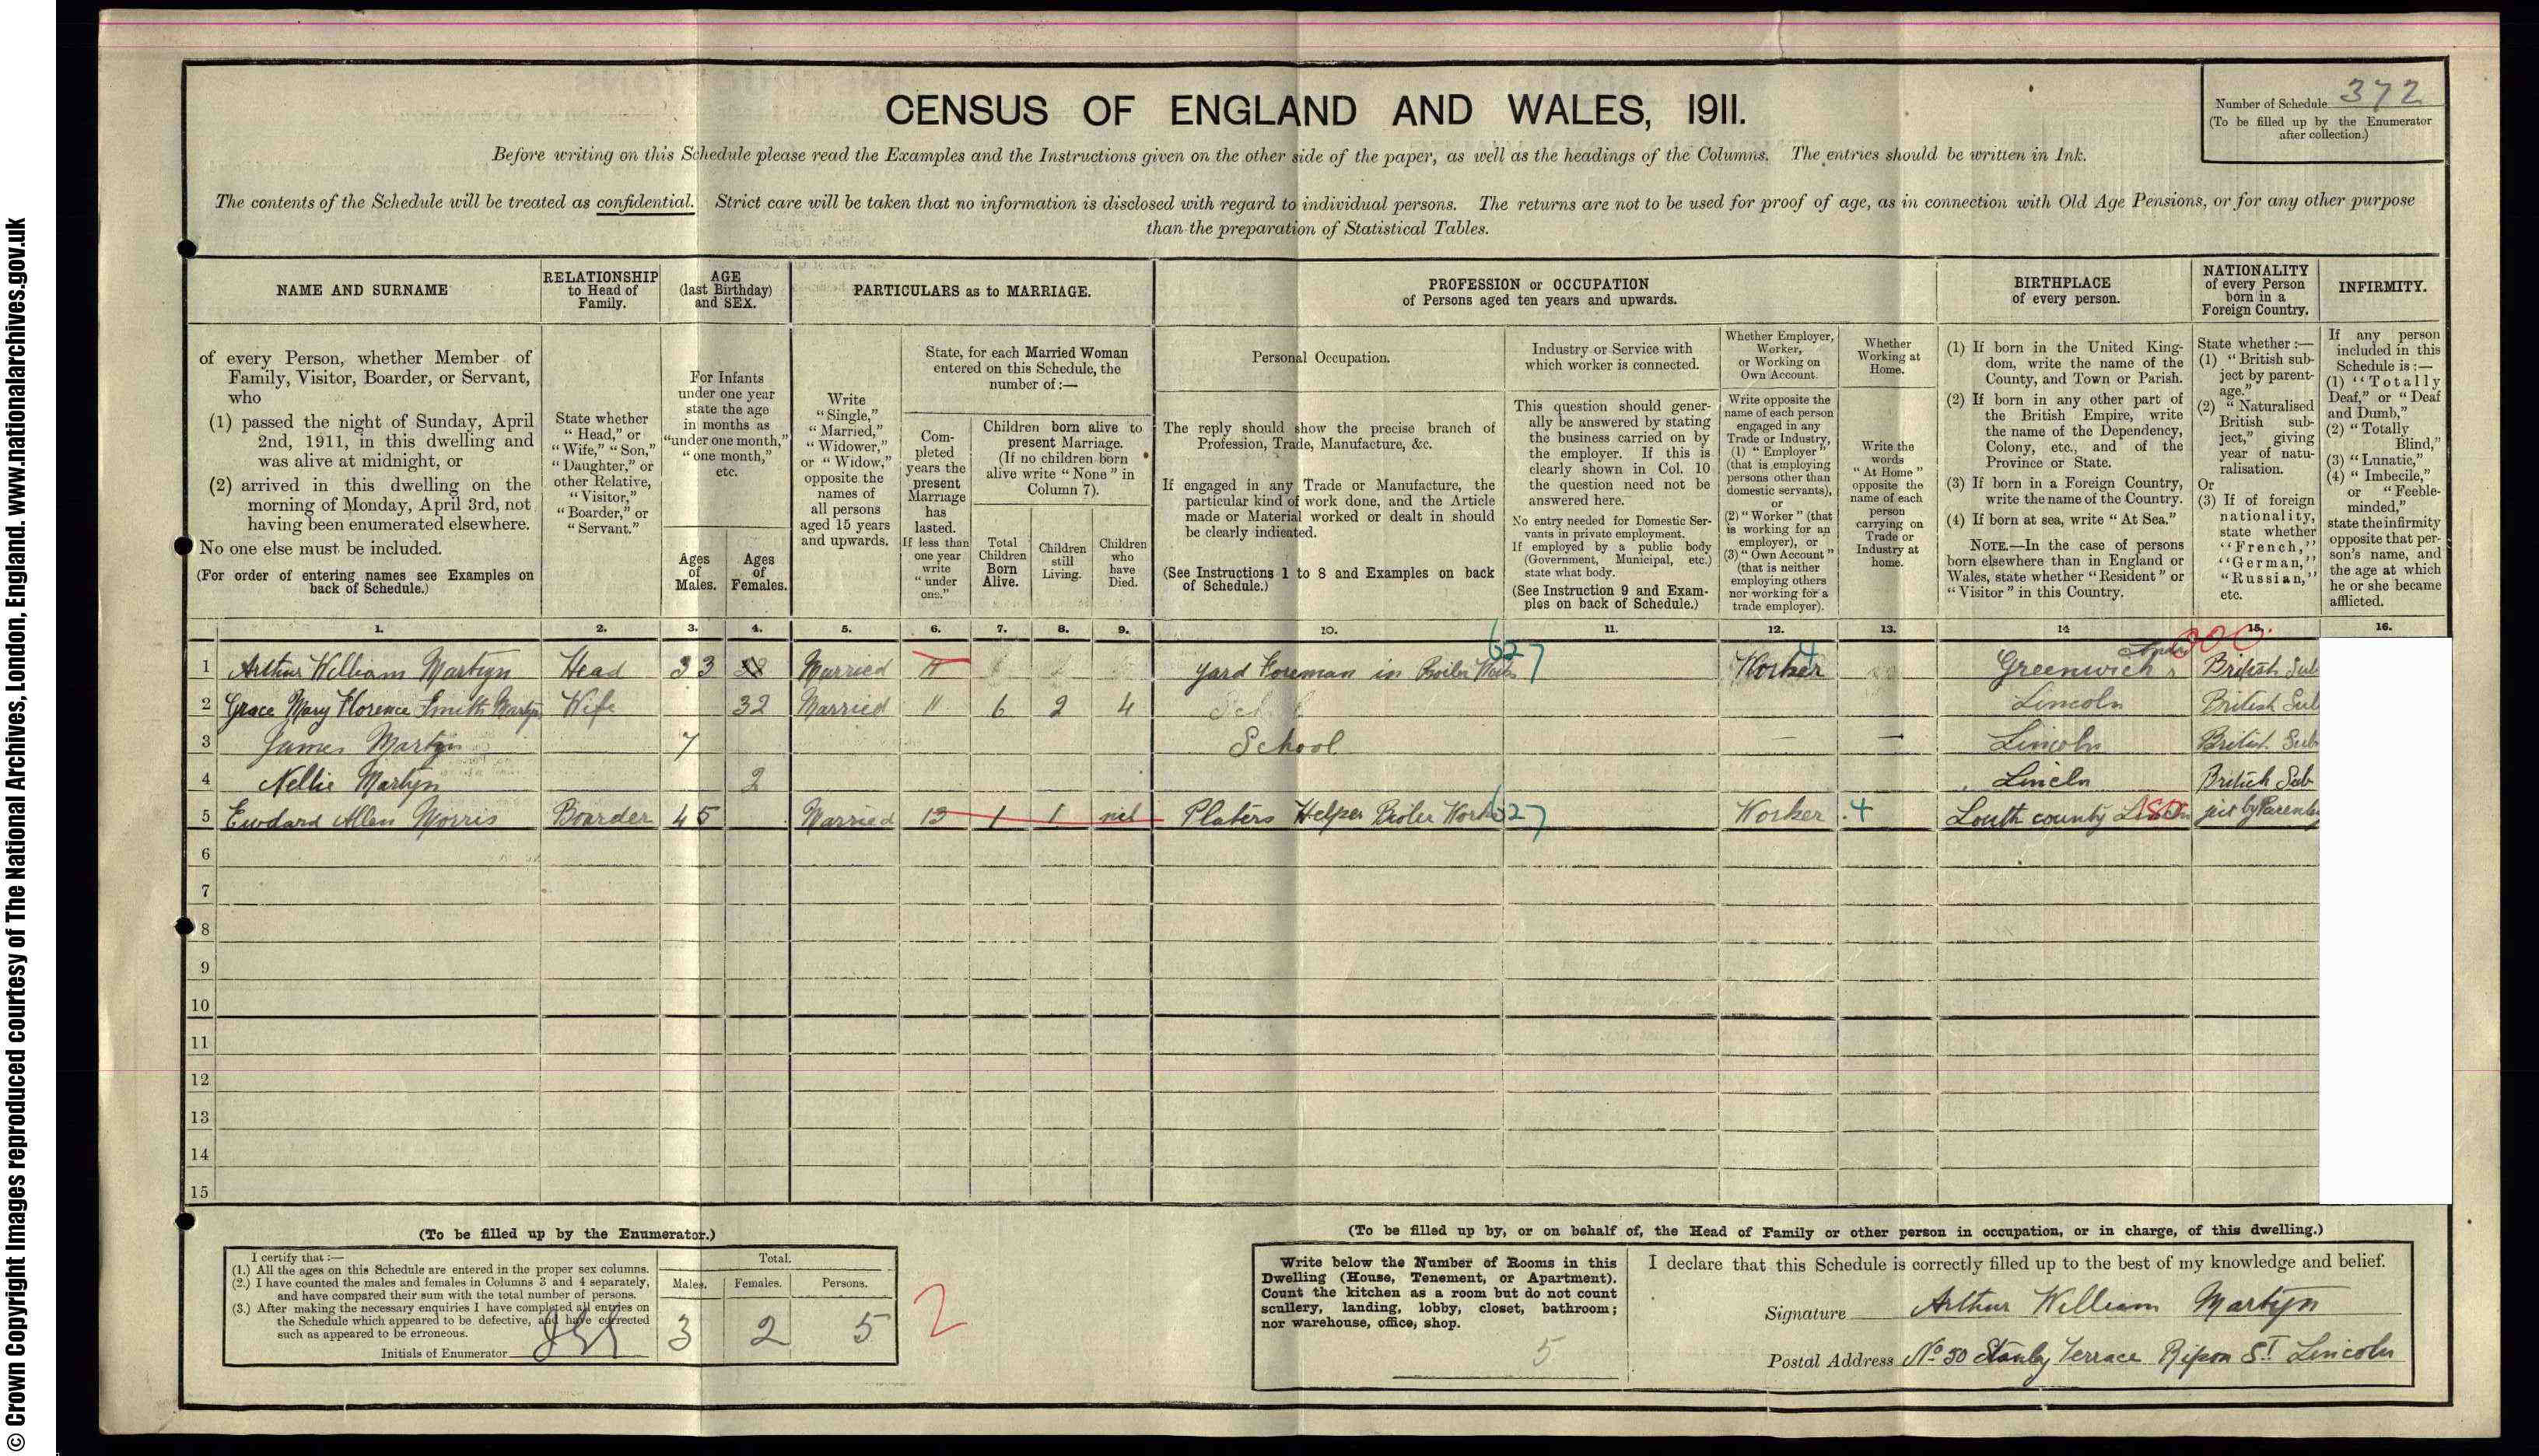 © Crown Copyright Images reproduced courtesy of The National Archives, London, England. www.nationalarchives.gov.uk
CENSUS OF ENGLAND AND WALES, 1911.
Number of Schedule 372
(To be filled up by the Enumerator
after collection.)
Before writing on this Schedule please read the Examples and the Instructions given on the other side of the paper, as well as the headings of the Columns. The entries should be written in Ink.
The contents of the Schedule will be treated as confidential. Strict care will be taken that no information is disclosed with regard to individual persons. The returns are not to be used for proof of age, as in connection with Old Age Pensions, or for any other purpose
than the preparation of Statistical Tables.
NAME AND SURNAME
of every Person, whether Member of
Family, Visitor, Boarder, or Servant,
who
(1) passed the night of Sunday, April
2nd, 1911, in this dwelling and
was alive at midnight, or
(2) arrived in this dwelling on the
morning of Monday, April 3rd, not
having been enumerated elsewhere.
No one else must be included.
(For order of entering names see Examples on
back of Schedule.)
RELATIONSHIP
to Head of
Family.
State whether
"Head," or
"Wife," "Son,"
"Daughter," or
other Relative,
"Visitor,"
"Boarder," or
"Servant."
AGE
(last Birthday)
and SEX.
For Infants
under one year
state the age
in months as
"under one month,"
"one month,"
etc.
Ages
of
Males.
Ages
of
Females.
PARTICULARS as to MARRIAGE.
Write
"Single,"
"Married,"
"Widower,"
or "Widow,"
opposite the
names of
all persons
aged 15 years
and upwards.
State, for each Married Woman
entered on this Schedule, the
number of :—
Com-
pleted
years the
present
Marriage
has
lasted.
If less than
one year
write
"under
one."
Children born alive to
present Marriage.
(If no children born
alive write "None" in
Column 7).
Total
Children
Born
Alive.
Children
still
Living.
Children
who
have
Died.
PROFESSION or OCCUPATION
of Persons aged ten years and upwards.
Personal Occupation.
The reply should show the precise branch of
Profession, Trade, Manufacture, &c.
If engaged in any Trade or Manufacture, the
particular kind of work done, and the Article
made or Material worked or dealt in should
be clearly indicated.
(See Instructions 1 to 8 and Examples on back
of Schedule.)
Industry or Service with
which worker is connected.
This question should gener-
ally be answered by stating
the business carried on by
the employer. If this is
clearly shown in Col. 10
the question need not be
answered here.
No entry needed for Domestic Ser-
vants in private employment.
If employed by a public body
(Government, Municipal, etc.)
state what body.
(See Instruction 9 and Exam-
ples on back of Schedule.)
Whether Employer,
Worker,
or Working on
Own Account.
Write opposite the
name of each person
engaged in any
Trade or Industry,
(1) "Employer"
(that is employing
persons other than
domestic servants),
or
(2) "Worker" (that
is working for an
employer), or
(3) "Own Account"
(that is neither
employing others
nor working for a
trade employer).
Whether
Working at
Home.
Write the
words
"At Home"
opposite the
name of each
person
carrying on
Trade or
Industry at
home.
BIRTHPLACE
of every person.
(1) If born in the United King-
dom, write the name of the
County, and Town or Parish.
(2) If born in any other part of
the British Empire, write
the name of the Dependency,
Colony, etc., and of the
Province or State.
(3) If born in a Foreign Country,
write the name of the Country.
(4) If born at sea, write "At Sea."
NOTE.—In the case of persons
born elsewhere than in England or
Wales, state whether "Resident" or
"Visitor" in this Country.
NATIONALITY
of every Person
born in a
Foreign Country.
State whether :—
(1) "British sub-
ject by parent-
age."
(2) "Naturalised
British sub-
ject," giving
year of natu-
ralisation.
Or
(3) If of foreign
nationality,
state whether
"French,"
"German,"
"Russian,"
etc.
INFIRMITY.
If any person
included in this
Schedule is :—
(1) "Totally
Deaf," or "Deaf
and Dumb,"
(2) "Totally
Blind,"
(3) "Lunatic,"
(4) "Imbecile,"
or "Feeble-
minded,"
state the infirmity
opposite that per-
son's name, and
the age at which
he or she became
afflicted.
1. 2. 3. 4. 5. 6. 7. 8. 9. 10. 11. 12. 13. 14 15. 16.
1 Arthur William Martyn Head 33 Married 11 Yard Foreman in Boiler Works 627 Worker 4 Greenwich 000 British Sub
2 Grace Mary Florence Smith Martyn Wife 32 Married 11 6 2 4 Lincoln British Sub
3 James Martyn 7 School — — Lincoln British Sub
4 Nellie Martyn 2 Lincln British Sub
5 Ewdard Allen Morris Boarder 45 Married 13 1 1 nil Platers Helper Bioler Works 627 Worker 4 Louth county ject by Parentage
6
7
8
9
10
11
12
13
14
15
(To be filled up by the Enumerator.)
I certify that :—
(1.) All the ages on this Schedule are entered in the proper sex columns.
(2.) I have counted the males and females in Columns 3 and 4 separately,
and have compared their sum with the total number of persons.
(3.) After making the necessary enquiries I have completed all entries on
the Schedule which appeared to be defective, and have corrected
such as appeared to be erroneous.
Initials of Enumerator
Total.
Males. Females. Persons.
3 2 5
2
(To be filled up by, or on behalf of, the Head of Family or other person in occupation, or in charge, of this dwelling.)
Write below the Number of Rooms in this
Dwelling (House, Tenement, or Apartment).
Count the kitchen as a room but do not count
scullery, landing, lobby, closet, bathroom;
nor warehouse, office, shop.
5
I declare that this Schedule is correctly filled up to the best of my knowledge and belief.
Signature Arthur William Martyn
Postal Address No 50 Stanley Terrace Ripon St Lincoln